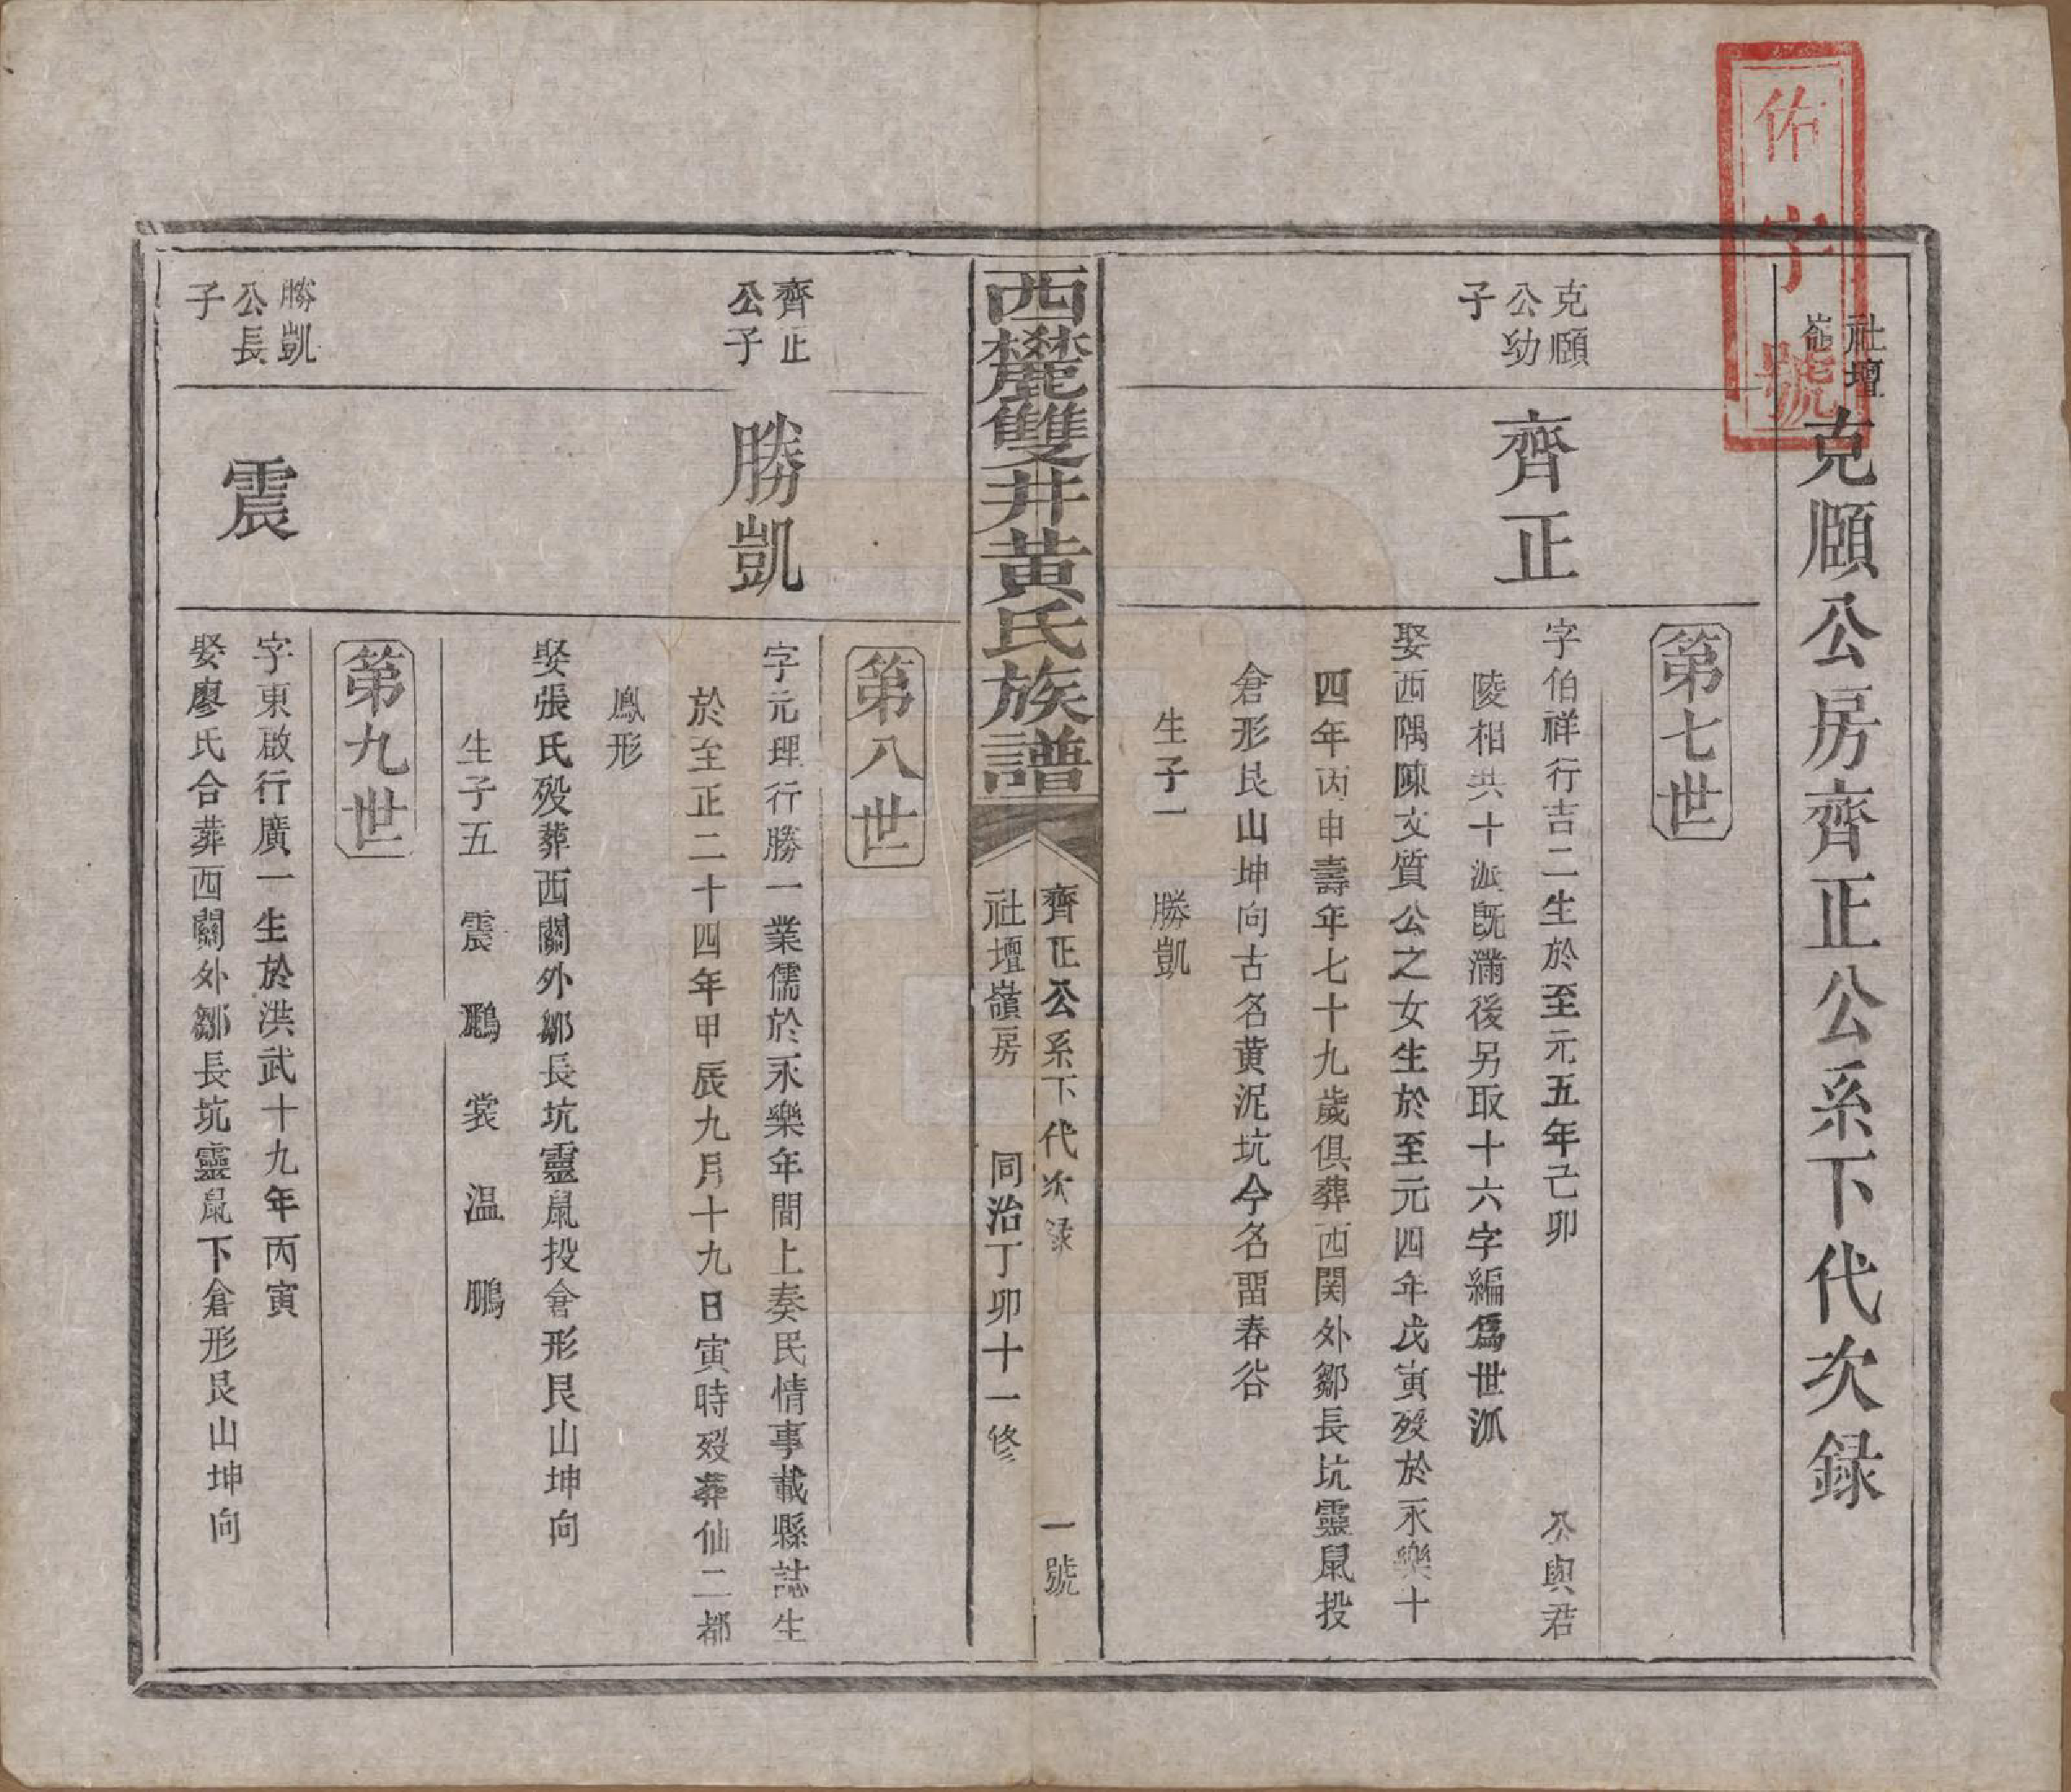 佑字號
社壇嶺克頤公房齊正公系下代次録
第七世
克頤公幼子
齊正
字伯祥行吉二生於至元五年己卯 公與君
陵相共十派既滿後另取十六字編爲世派
娶西隅陳文質公之女生於至元四年戊寅歿於永樂十
四年丙申壽年七十九歲俱葬西関外鄒長坑靈鼠投
倉形艮山坤向古名黄泥坑今名畱春谷
生子一 勝凱
西麓雙井黃氏族譜
齊正公系下代次録 一號
社壇嶺房 同治丁卯十一修
第八世
齊正公子
勝凱
字元理行勝一業儒於永樂年間上奏民情事載縣誌生
於至正二十四年甲辰九月十九日寅時歿葬仙二都
鳳形
娶張氏歿葬西關外鄒長坑靈鼠投倉形艮山坤向
生子五 震 鸝 裳 温 鵬
第九世
勝凱公長子
震
字東啟行廣一生於洪武十九年丙寅
娶廖氏合葬西關外鄒長坑靈鼠下倉形艮山坤向